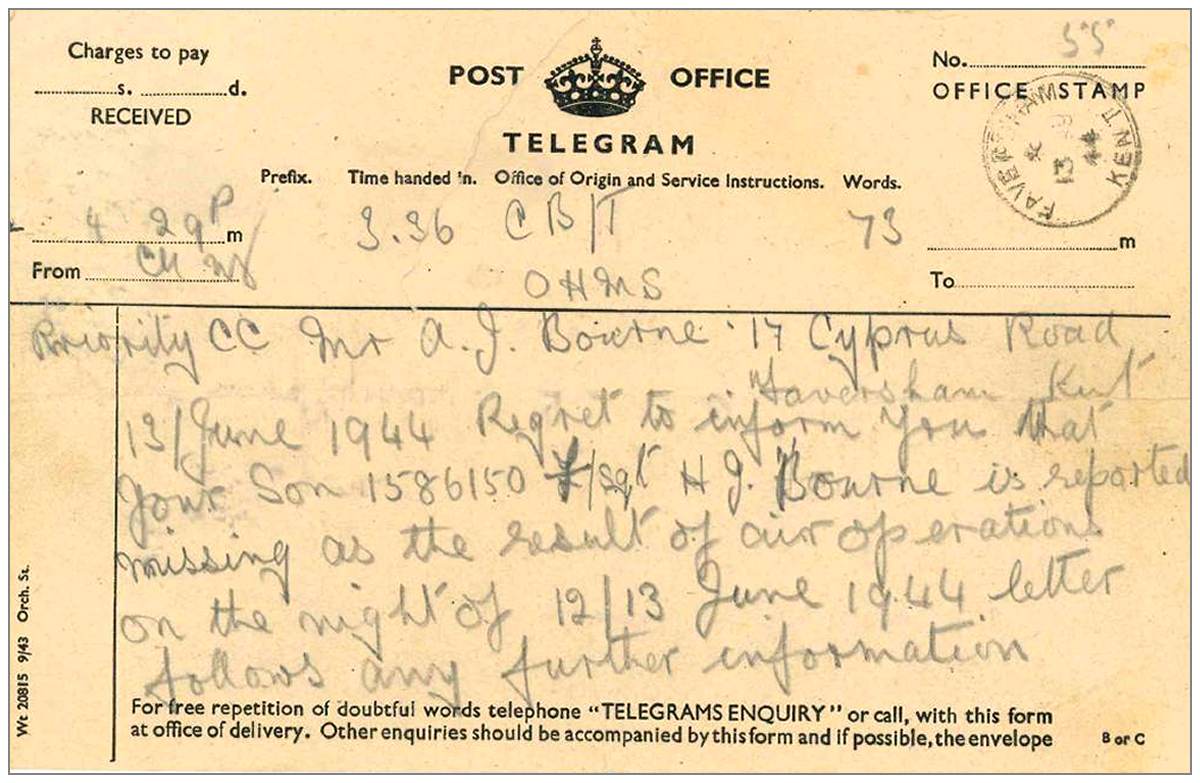 Charges to pay
s. d.
RECEIVED
POST OFFICE
TELEGRAM
No. 55
OFFICE STAMP
FAVERSHAM KENT
13
44
Prefix. Time handed in. Office of Origin and Service Instructions. Words.
4 29P m
3.36 CB/T 73
m
From CH
OHMS
To
Priority CC Mr A. J. Bourne 17 Cyprus Road
Faversham Kent
13/June 1944 Regret to inform you that
your Son 1586150 F/sgt H J. Bourne is reported
missing as the result of air operations
on the night of 12/13 June 1944 letter
follows any further information
For free repetition of doubtful words telephone "TELEGRAMS ENQUIRY" or call, with this form
at office of delivery. Other enquiries should be accompanied by this form and if possible, the envelope
B or C
Wt 20815 9/43 Orch. Ss.